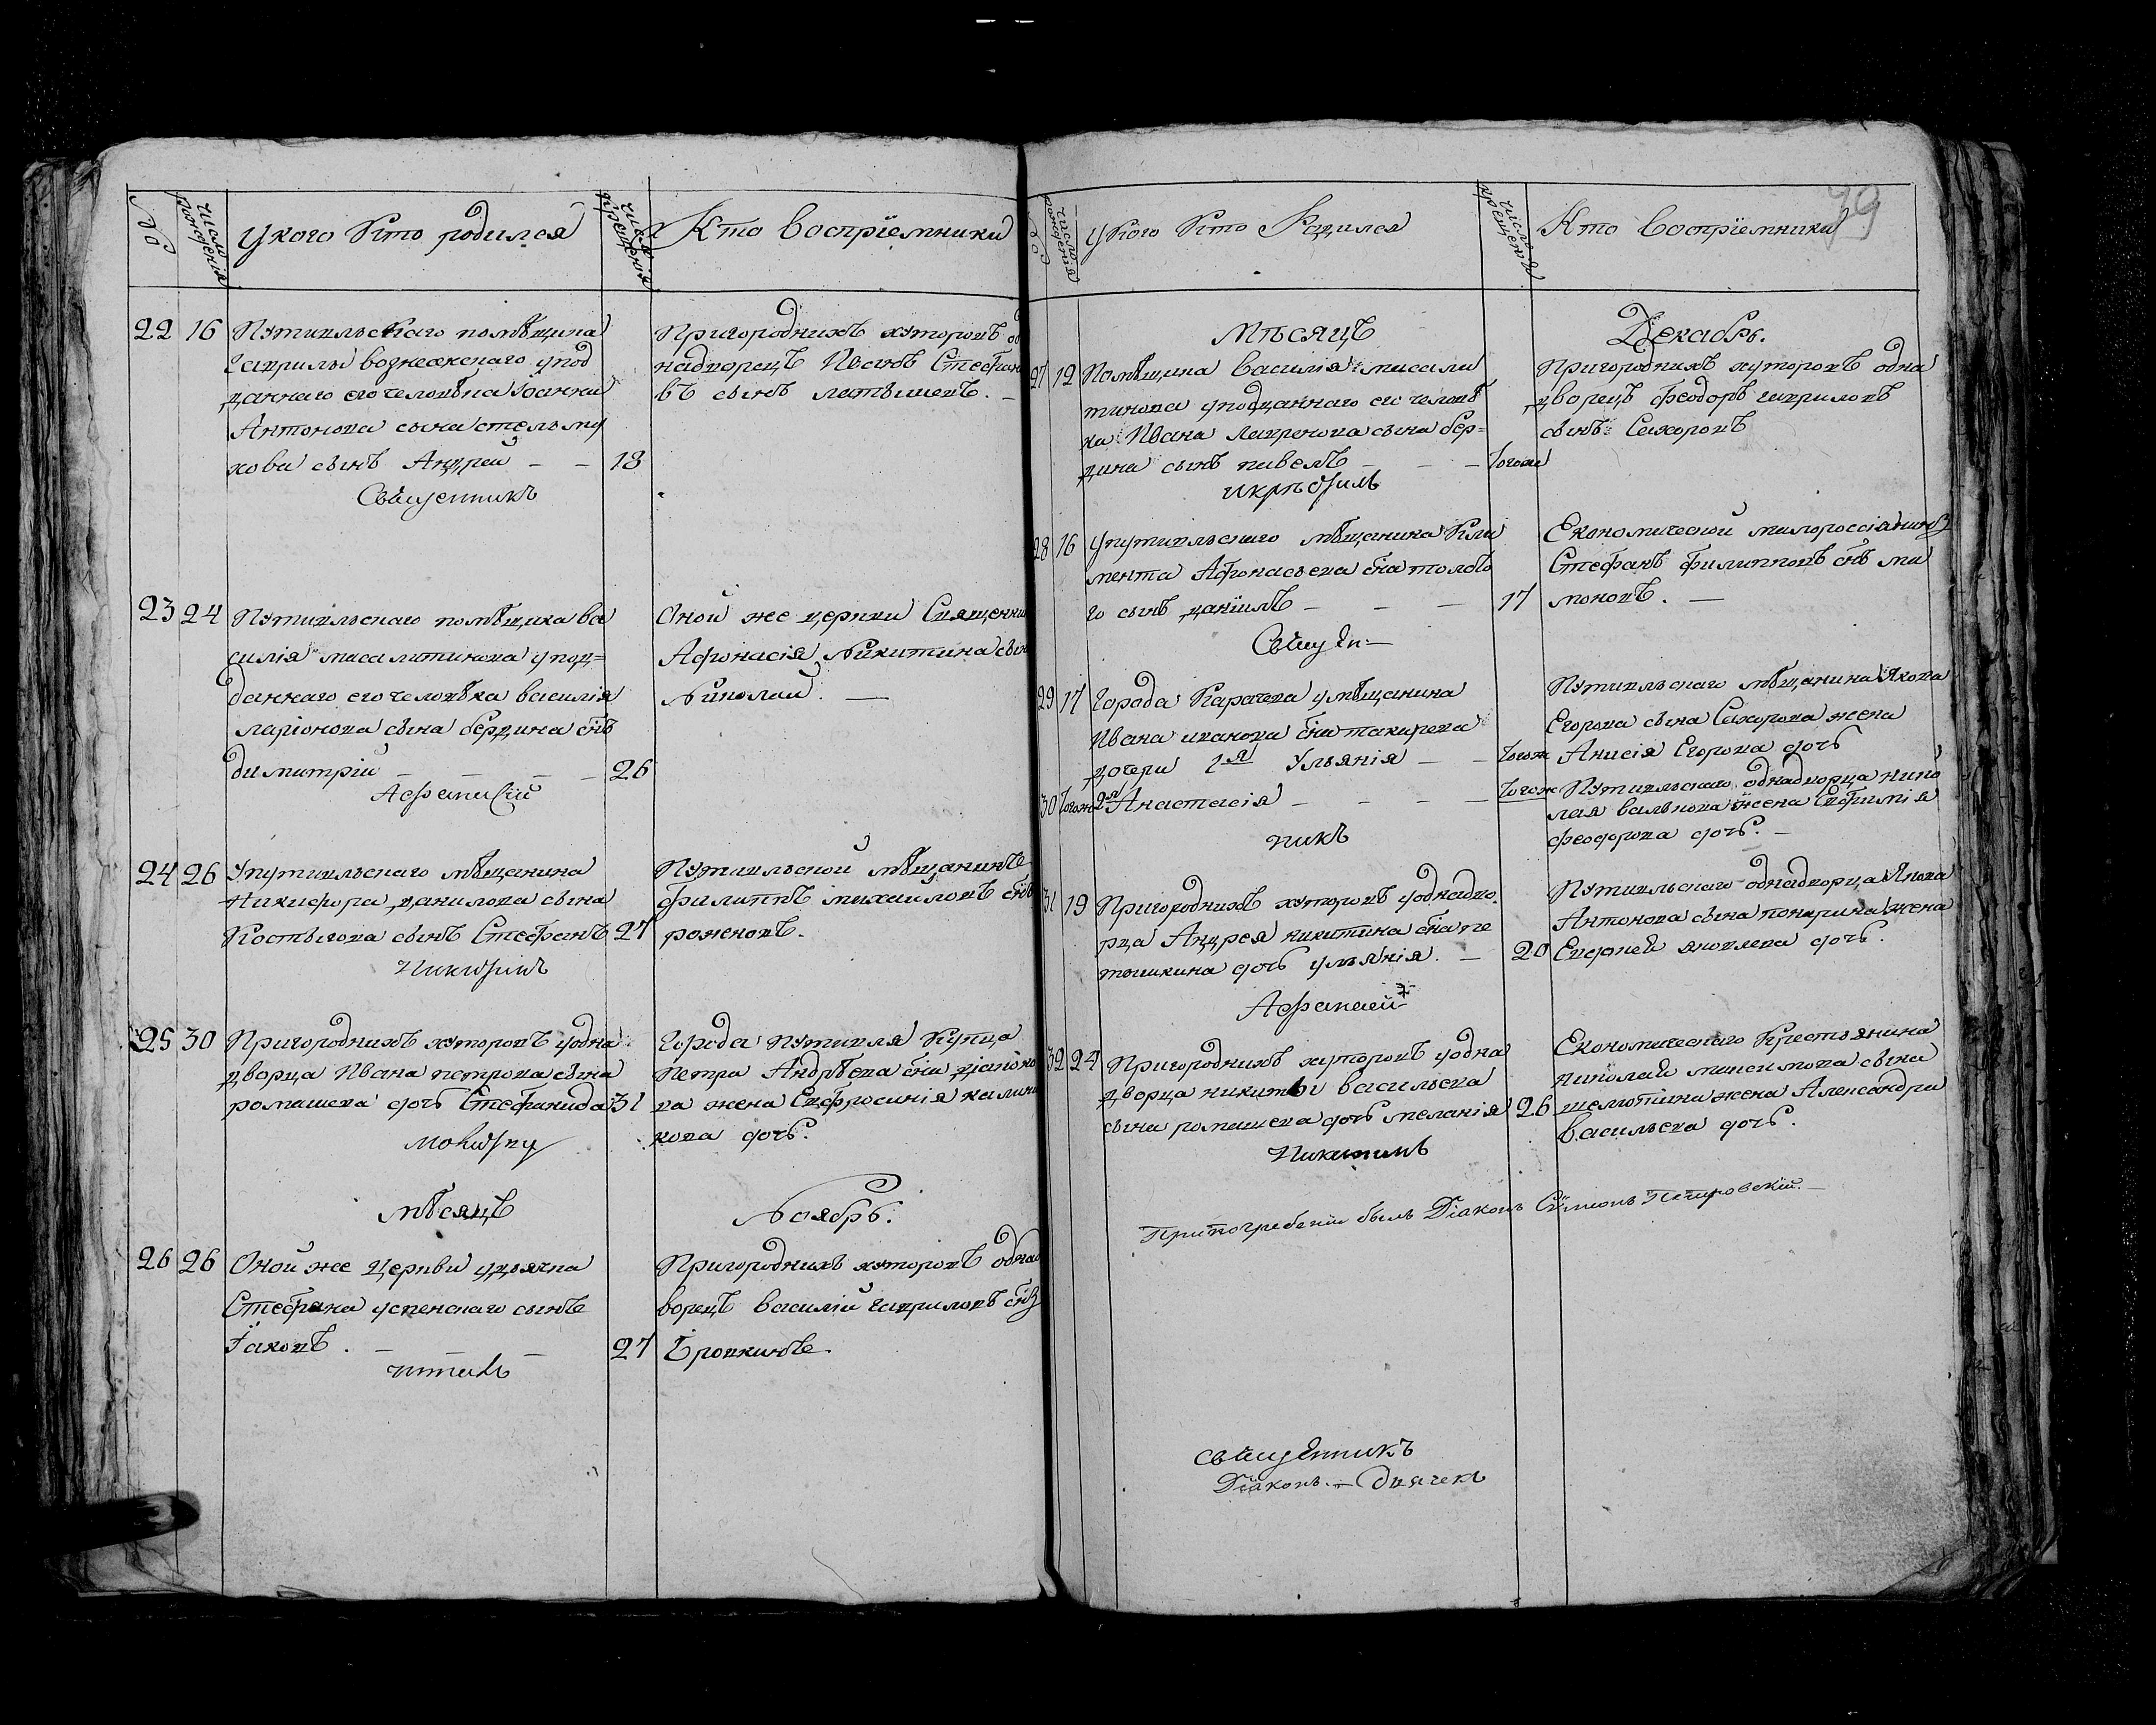 №
число рожденія
У кого кто родился
число крещенія
Кто восприемники
22 16 Путивльскаго помѣщика
Гаврилы вознесенскаго упод
даннаго его человѣка Іоанна
Антонова сына
сынъ Андрей 18
Пригородних хуторовъ од
надворецъ Иванъ Стефано
въ сынъ
Священникъ
23 24 Путивльскаго помѣщика ва
силія масалитинова упод=
даннаго его человѣка василія
ларіонова сына бердина снъ
димитрій 26
Оной же церкви Священни
Афонасія Никитина сын
Николай.
Афанасий
24 26 Упутивльскаго мѣщанина
Никифора данилова сына
Костылова сынъ Стефанъ 27
Путивльской мѣщанинъ
филиппъ михаиловъ снъ
роженовъ.
Никитинъ
25 30 Пригородних хуторовъ уодна
дворца Ивана петрова сына
ромашева дочь Стефанида 31
Города Путивля Купца
Петра Андрѣева сна
ва жена Евфросинія калини
кова дочь.
мѣсяцъ Ноябрь.
26 26 Оной же церкви удьячка
Стефана успенскаго сынъ
Іаковъ. 27
Пригородних хуторовъ однод
ворецъ василій гавриловъ снъ
Бровкинъ.
79
№
число рожденія
У кого кто Родился
число крещенія
Кто восприемники
Мѣсяцъ Декабрь.
27 12 Помѣщика василія масали
тинова уподданнаго его человѣ
ка Ивана Лавренова сына бер=
дина сынъ павелъ тогоже
Пригородних хуторовъ одна
дворецъ феодоръ гавриловъ
сынъ Сахоровъ
28 16 упутивльскаго мѣщанина Кли
мента Афонасьева сна толсто
го сынъ даніилъ 17
Економической малороссіянинъ
Стефанъ филипповъ снъ ли
моновъ.
29 17 Города Карачева умѣщанина
Ивана иванова сна токарева
дочери 1я Ульянія тогоже
Путивльскаго мѣщанина Якова
Егорова сына Сахорова жена
Анисія Егорова дочь
30 тогоже 2я Анастасія тогоже
Путивльскаго однадворца нико
лая жена Евфимія
феодорова дочь.
никъ
31 19 Пригородних хуторовъ уоднадво
рца Андрея никитина сна пе
тошкина дочь ульянія. 20
Путивльскаго однадворца Якова
Антонова сына жена
яковлева дочь.
Афанасий
32 24 Пригородних хуторовъ уодна
дворца никиты васильева
сына ромашева дочь меланія 26
Економическаго Крестьянина
николая максимова сына
жена Александра
Васильева дочь.
Никитинъ
При погребеніи былъ Діаконъ Сѵмеонъ Петровскій.
священникъ
Діаконъ. — Дьячекъ